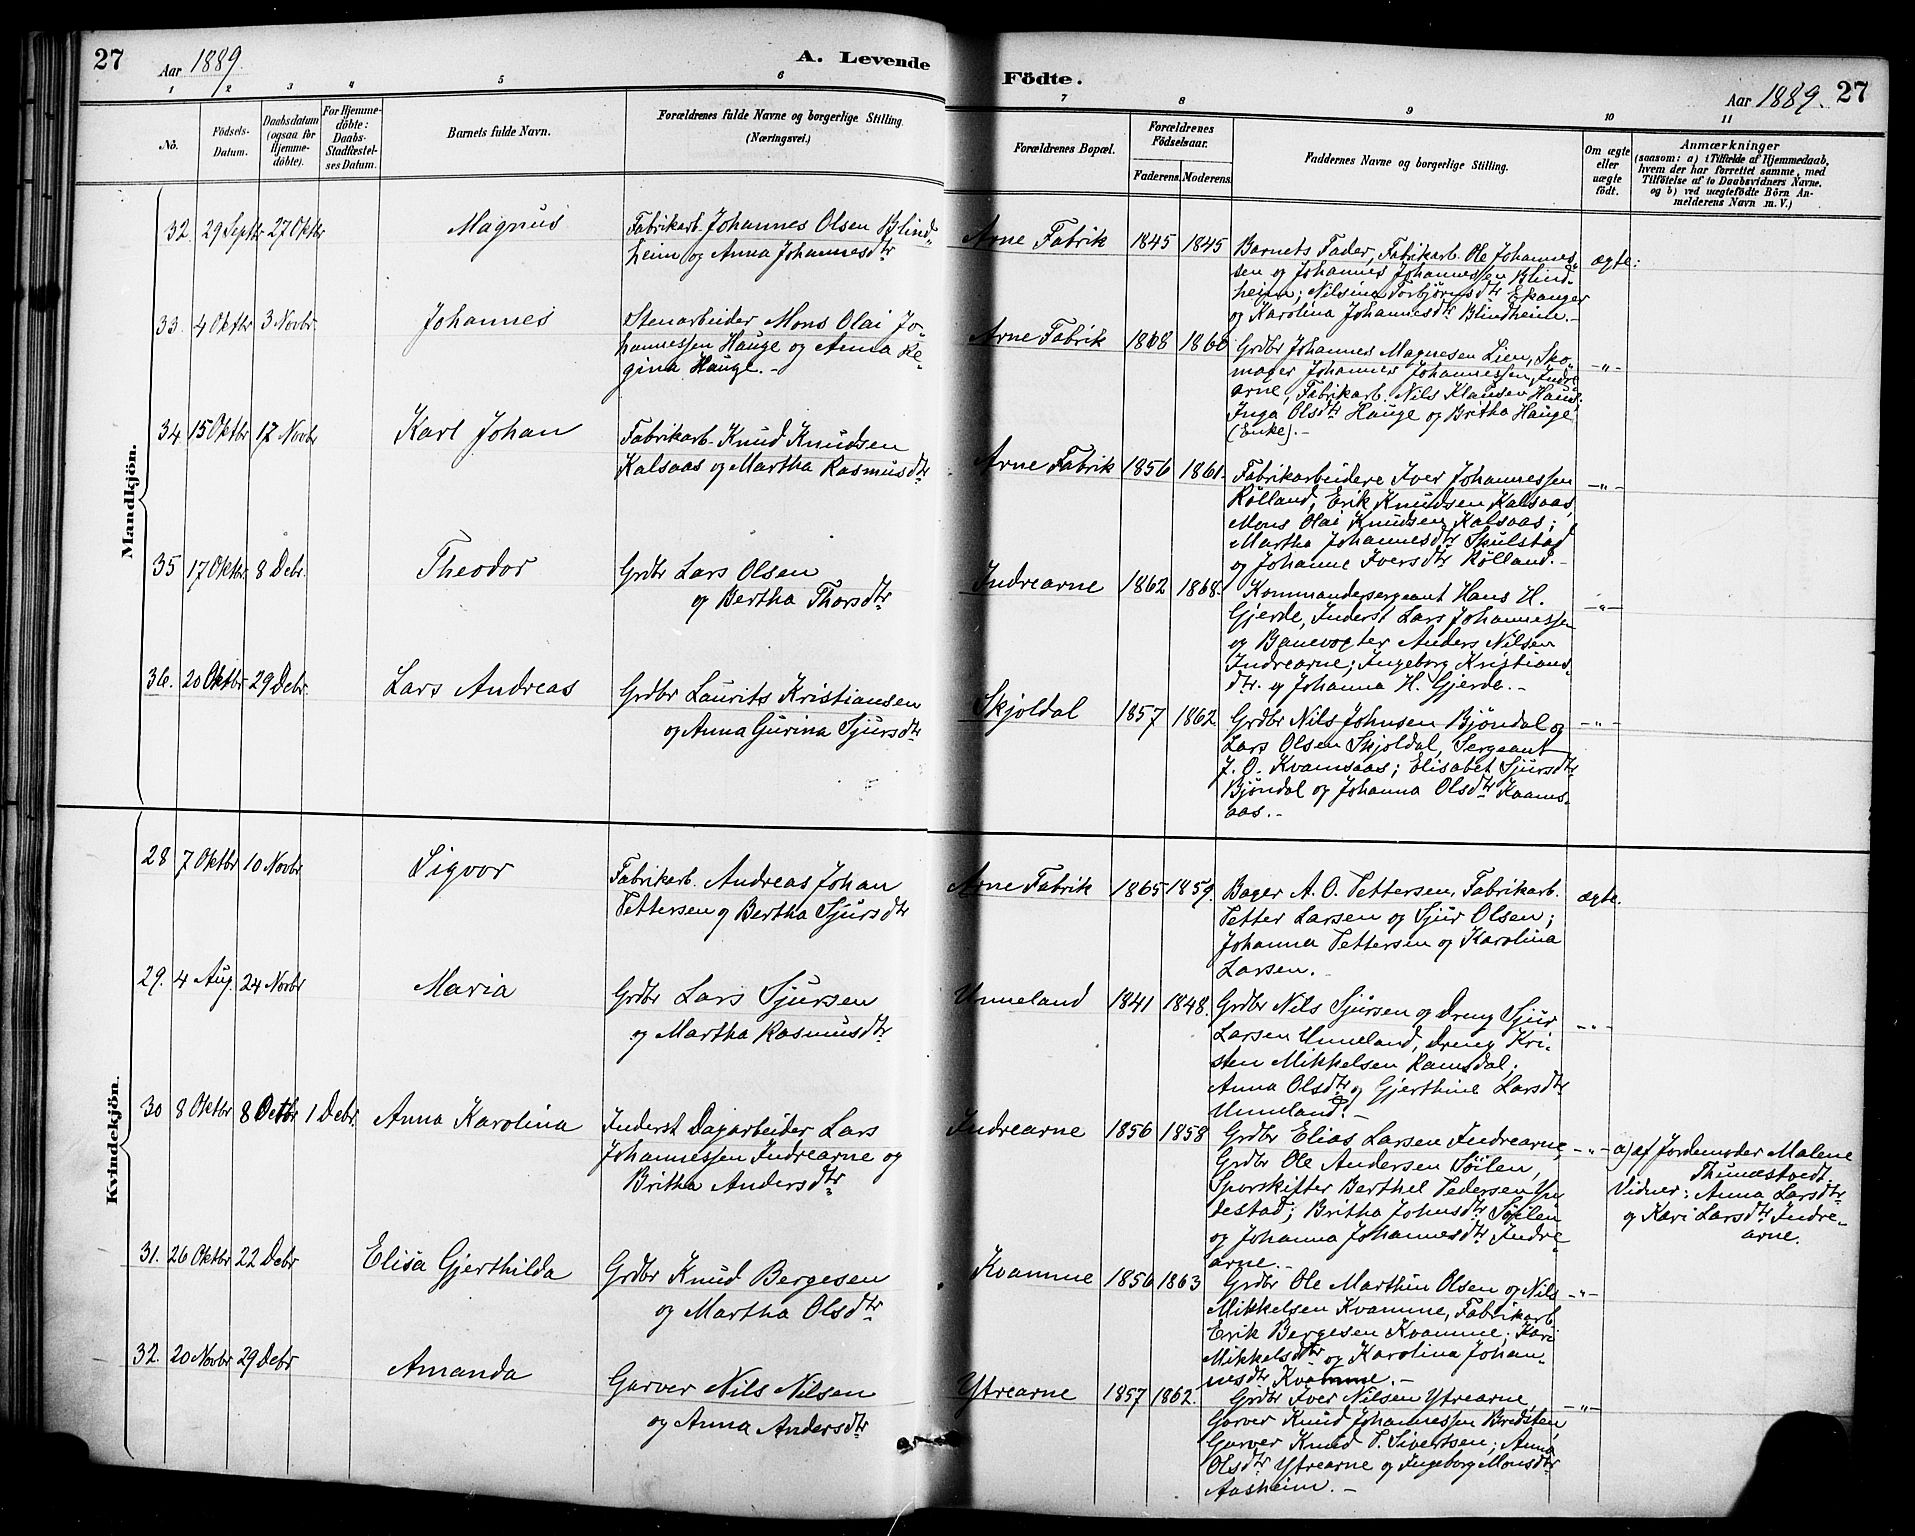 27
Aar 1889.
A. Levende
Födte.
Aar 1889.
27
1 2 3 4 5 6 7 8 9 10 11
No.
Födsels-
Datum.
Daabsdatum
(ogsaa for
Hjemme-
döbte).
For Hjemme-
döbte:
Daabs-
Stadfæstel-
ses Datum.
Barnets fulde Navn.
Forældrenes fulde Navne og borgerlige Stilling.
(Næringsvei.)
Forældrenes Bopæl.
Forældrenes
Födselsaar.
Faderens. Moderens.
Faddernes Navne og borgerlige Stilling.
Om ægte
eller
uægte
födt.
Anmærkninger
(saasom: a) i Tilfælde af Hjemmedaab,
hvem der har forrettet samme, med
Tilföielse af to Daabsvidners Navne,
og b) ved uægtefödte Börn An-
melderens Navn m. V.)
Mandkjön.
32. 29 Septbr 27 Oktbr Magnus
Fabrikarb. Johannes Olsen Blind-
heim og Anna Johannesdtr
Arne Fabrik 1845 1845
Barnets Fader, Fabrikarb. Ole Johannes-
sen og Johannes Johannessen Blind-
heim; Nilsina Torbjörnsdtr Ekanger
og Karolina Johannesdtr Blindheim.-
ægte.
33. 4 Oktbr 3 Novbr Johannes
Stenarbeider Mons Olai Jo-
hannessen Hauge og Anna Re-
gina Hauge.-
Arne Fabrik 1868 1860
Grdbr Johannes Magnesen Lien, Sko-
mager Johannes Johannessen Indre
arne, Fabrikarb. Nils Klausen Haus;
Inga Olsdtr Hauge og Britha Hauge
(Enke).-
-"-
34 15 Oktbr 17 Novbr Karl Johan
Fabrikarb. Knud Knudsen
Kalsaas og Martha Rasmusdtr
Arne Fabrik 1856 1861.
Fabrikarbeidere Iver Johannessen
Rölland, Erik Knudsen Kalsaas,
Mons Olai Knudsen Kalsaas;
Martha Johannesdtr Skulstad
og Johanne Iversdtr Rölland.-
-"-
35 17 Oktbr 8 Debr. Theodor
Grdbr Lars Olsen
og Bertha Thorsdtr
Indrearne 1862 1868.
Kommandersergeant Hans H.
Gjerde, Inderst Lars Johannessen
og Banevogter Anders Nilsen
Indrearne; Ingeborg Kristians-
dtr. og Johanna H. Gjerde.-
-"-
36. 20 Oktbr 29 Debr. Lars Andreas
Grdbr Laurits Kristiansen
og Anna Gurina Sjursdtr
Skjoldal 1857 1862
Grdbr Nils Johnsen Bjöndal og
Lars Olsen Skjoldal, Sergeant
J. O. Kvamsaas; Elisabet Sjursdtr
Bjöndal og Johanna Olsdtr Kvams-
aas.-
-"-
Kvindekjön.
28 7 Oktbr 10 Novbr Sigvor
Fabrikarb. Andreas Johan
Pettersen og Bertha Sjursdtr
Arne Fabrik 1865 1859.
Bager A. O. Pettersen, Fabrikarb.
Petter Larsen og Sjur Olsen;
Johanna Pettersen og Karolina
Larsen.-
ægte.
29. 4 Aug. 24 Novbr Maria
Grdbr Lars Sjursen
og Martha Rasmusdtr
Unneland 1841 1848.
Grdbr Nils Sjursen og Dreng Sjur
Larsen Unneland, Dreng Kri-
sten Mikkelsen Ramsdal;
Anna Olsdtr og Gjerthine Larsdtr
Unneland.-
-"-
30 8 Oktbr 8 Octbr 1 Debr. Anna Karolina
Inderst Dagarbeider Lars
Johannessen Indrearne og
Britha Andersdtr
Indrearne 1856 1858
Grdbr Elias Larsen Indrearne,
Grdbr Ole Andersen Söilen,
Sporskifter Berthel Pedersen Yn-
destad; Britha Johnsdtr Söilen
og Johanna Johannesdtr Indre-
arne.-
-"-
a) af Jordemoder Malene
Thunestvedt.
Vidner: Anna Larsdtr
og Kari Larsdtr Indre-
arne.
31. 26 Oktbr 22 Debr Elisa Gjerthilda
Grdbr Knud Bergesen
og Martha Olsdtr
Kvamme 1856 1863
Grdbr Ole Marthin Olsen og Nils
Mikkelsen Kvamme, Fabrikarb.
Erik Bergesen Kvamme; Kari
Mikkelsdtr og Karolina Johan-
nesdtr Kvamme.-
-"-
32. 20 Novbr 29 Debr Amanda
Garver Nils Nilsen
og Anna Andersdtr
Ytrearne 1857 1862.
Grdbr Iver Nilsen Ytrearne,
Garver Knud Johannessen Bredsten,
Garver Knud T. Sivertsen; Anna
Olsdtr Ytrearne og Ingeborg Monsdtr
Aasheim.-
-"-